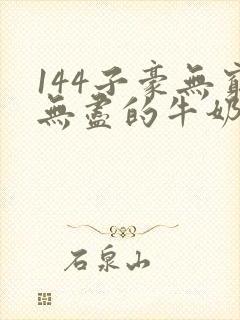 144子豪無窮
無盡的牛奶
石泉山